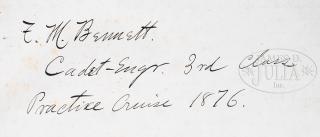 F. M. Bennett.
Cadet-Engr. 3rd class
Practice Cruise 1876.
JAMES D.
JULIA
Inc.